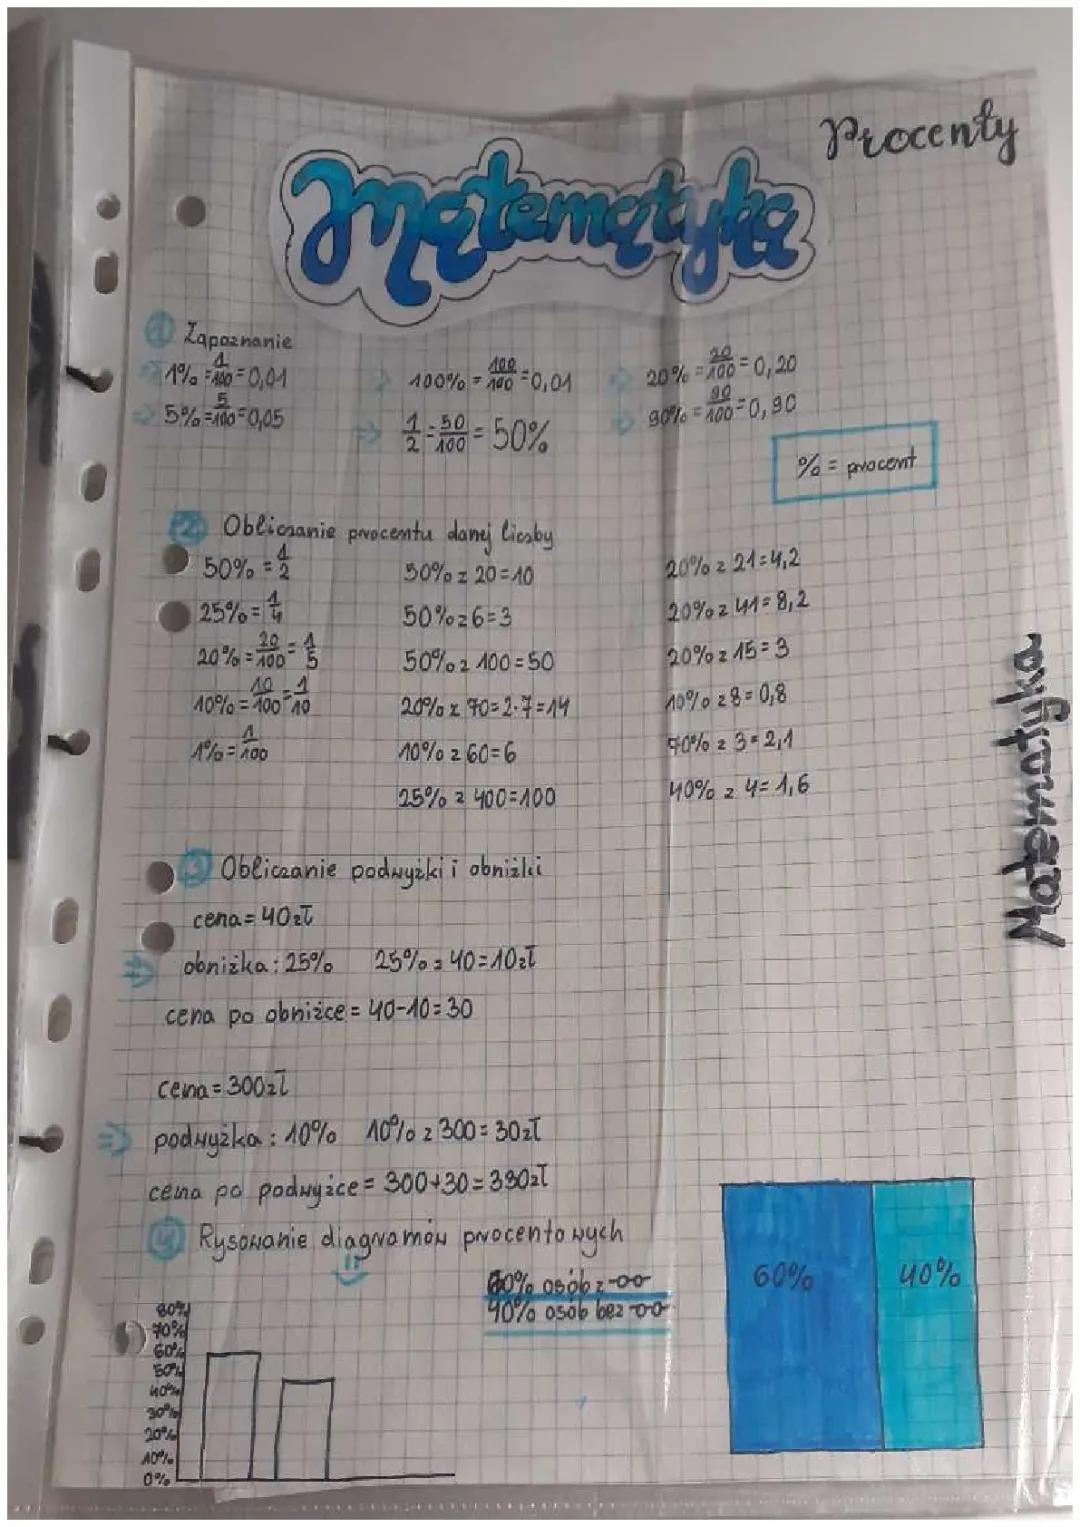 Procenty
Matematyka
1 Zapoznanie
1% = 1/100 = 0,01
5% = 5/100 = 0,05
100% = 100/100 = 0,01
1/2 = 50/100 = 50%
20% = 20/100 = 0,20
90% = 90/100 = 0,90
% = procent
2 Obliczanie procentu danej liczby
50% = 1/2
25% = 1/4
20% = 20/100 = 1/5
10% = 10/100 = 1/10
1% = 1/100
50% z 20 = 10
50% z 6 = 3
50% z 100 = 50
20% z 70 = 2·7 = 14
10% z 60 = 6
25% z 400 = 100
20% z 21 = 4,2
20% z 41 = 8,2
20% z 15 = 3
10% z 8 = 0,8
70% z 3 = 2,1
40% z 4 = 1,6
3 Obliczanie podwyżki i obniżki
cena = 40zł
obniżka: 25% 25% z 40 = 10zł
cena po obniżce = 40-10 = 30
cena = 300zł
podwyżka: 10% 10% z 300 = 30zł
cena po podwyżce = 300+30 = 330zł
4 Rysowanie diagramów procentowych
60% osób z
40% osób bez
80%
70%
60%
50%
40%
30%
20%
10%
0%
60% 40%
Matematyka